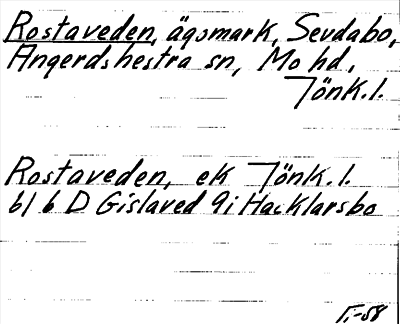 Rostaveden, ägomark, Sevdabo,
Angerdshestra sn, Mo hd,
Jönk.l.
Rostaveden, ek Jönk.l.
61 6 D Gislaved 9i Hacklarsbo
-58